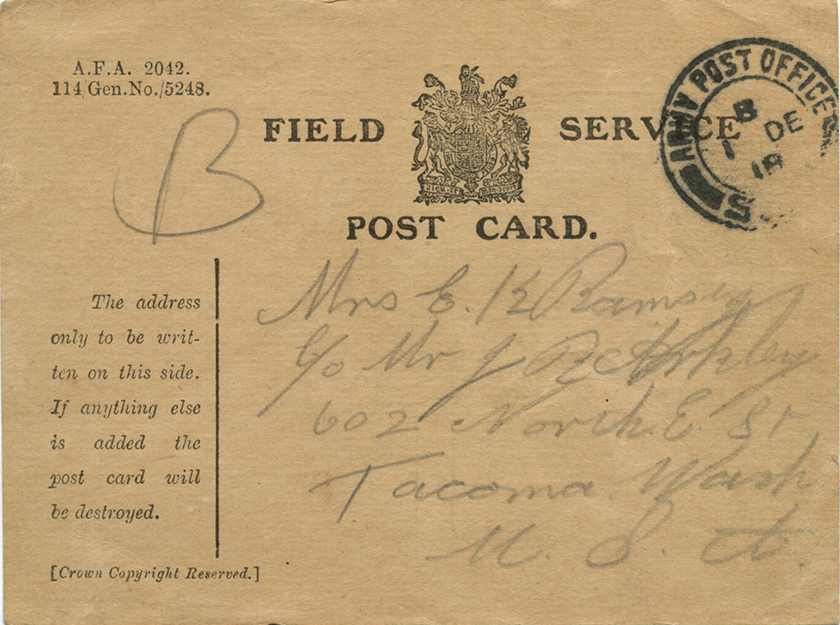 A.F.A. 2042.
114/Gen.No./5248.
B
FIELD SERVICE
POST CARD.
ARMY POST OFFICE
B
1 DE
18
The address
only to be writ-
ten on this side.
If anything else
is added the
post card will
be destroyed.
[Crown Copyright Reserved.]
Mrs E. K Ramsey
c/o Mr J B
602 North E St
Tacoma Wash
U. S. A.